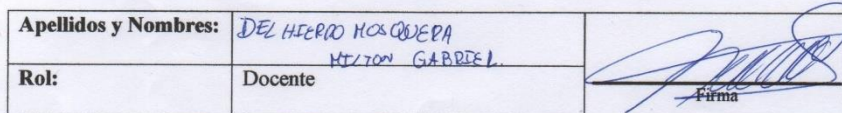 Apellidos y Nombres: DEL HIERRO MOSQUERA
MILTON GABRIEL.
Rol: Docente
Firma